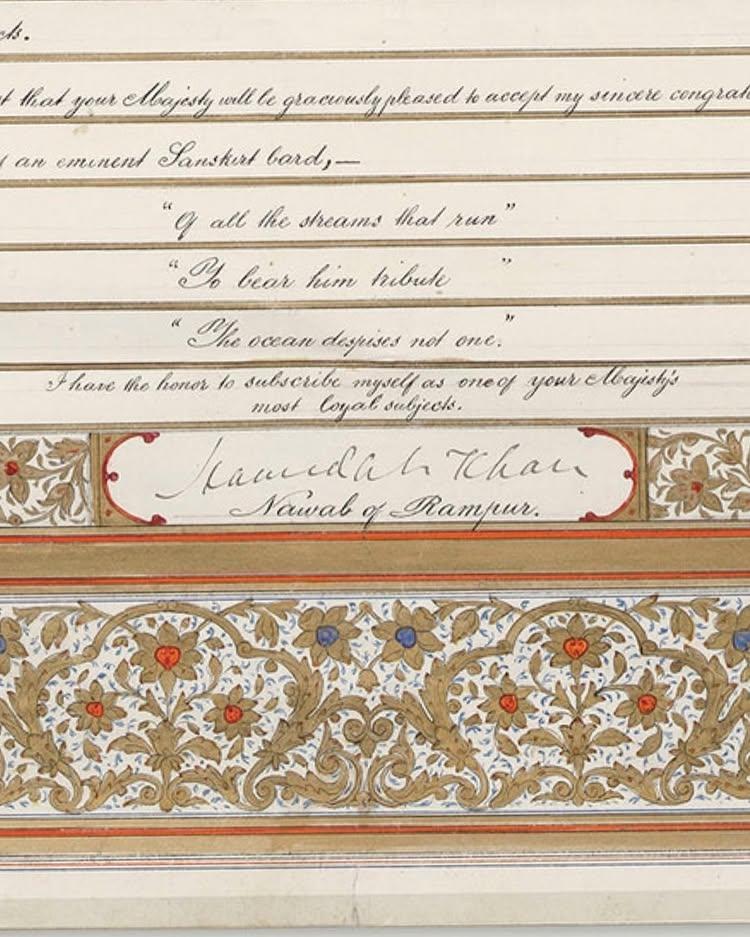 cts.
t that your Majesty will be graciously pleased to accept my sincere congrat
an eminent Sanskirt bard,—
"Of all the streams that run"
"To bear him tribute "
"The ocean despises not one."
I have the honor to subscribe myself as one of your Majesty's
most loyal subjects.
Hamid Ali Khan
Nawab of Rampur.